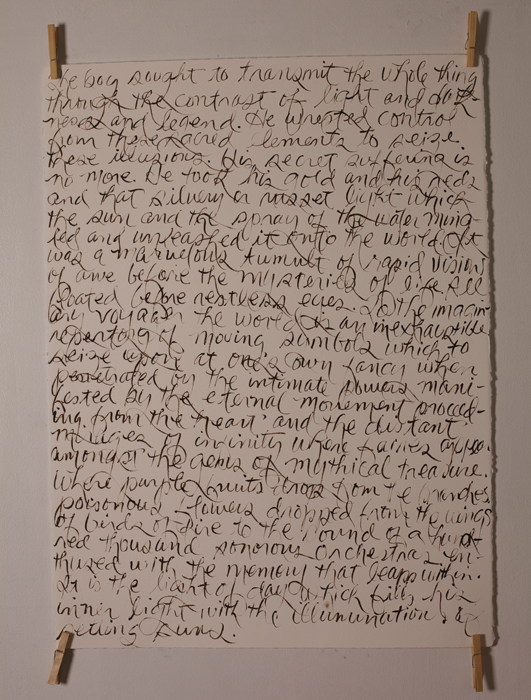 He boy sought to transmit the whole thing
through the contrast of light and dark-
ness and legend. He wrested control
from these sacred elements to seize
these illusions. His secret suffering is
no more. He took his gold and his reds
and that silvery or russet light which
the sun and the spray of the water ming-
led and unleashed it onto the world. It
was a marvelous tumult of rapid vision
of awe before the mysteries of life all
floated before restless eyes. To the imagin-
ary voyager the world is an inexhaustible
repertory of moving symbols which to
seize upon at one's own fancy when
penetrated by the intimate powers mani-
fested by the eternal movement proceed-
ing from the heart and the distant
mirages of infinity where fairies
amongst the gems of mythical treasure.
Where purple fruits drop from the branches
poisonous flowers dropped from the wings
of birds of fire to the sound of a hund-
red thousand sonorous orchestras en-
thused with the memory that leaps within.
It is the light of day which fills his
inner light with the illumination of
setting suns.